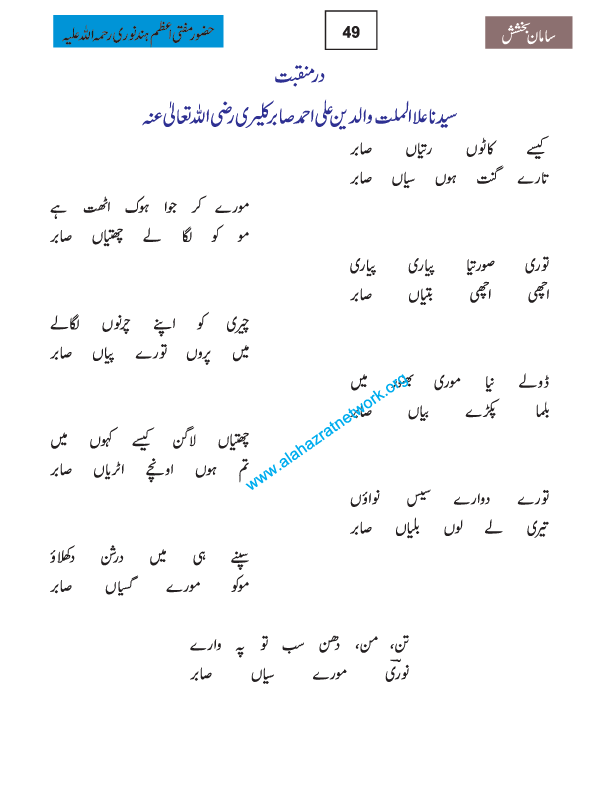 سامان بخشش
49
حضور مفتی اعظم ہند نوری رحمۃ اللہ علیہ
در منقبت
سیدنا علاالملت والدین علی احمد صابر کلیری رضی اللہ تعالیٰ عنہ
کیسے کاٹوں رتیاں صابر
تارے گنت ہوں سیاں صابر
مورے کر جوا ہوک اٹھت ہے
مو کو لگا لے چھتیاں صابر
توری صورتیا پیاری پیاری
اچھی اچھی بتیاں صابر
چیری کو اپنے چرنوں لگالے
میں پروں تورے پیاں صابر
ڈولے نیا موری بھنور میں
بلما پکڑے بیاں صابر
چھتیاں لاگن کیسے کہوں میں
تم ہوں اونچے اٹریاں صابر
تورے دوارے سیس نواؤں
تیری لے لوں بلیاں صابر
سپنے ہی میں درشن دکھلاؤ
موکو مورے گسیاں صابر
تن، من، دھن سب تو پہ وارے
نوریؔ مورے سیاں صابر
www.alahazratnetwork.org